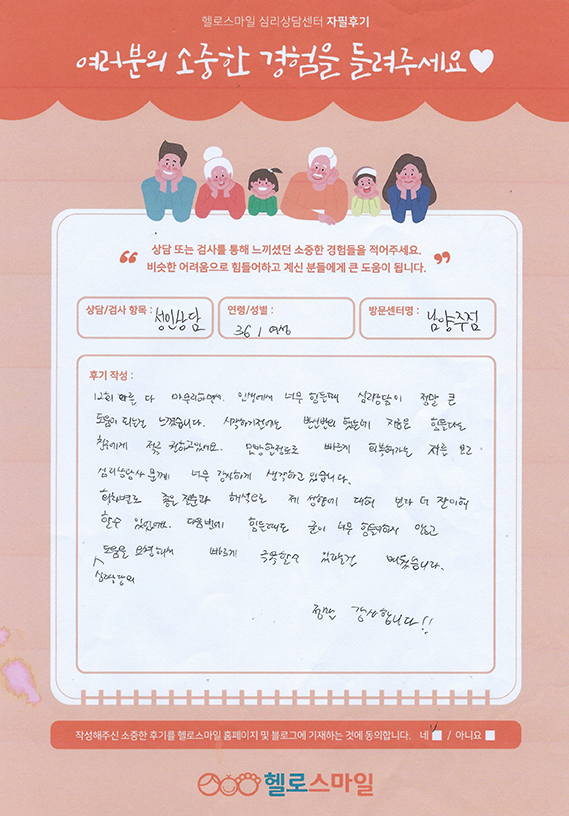 헬로스마일 심리상담센터 자필후기
여러분의 소중한 경험을 들려주세요♥
“ 상담 또는 검사를 통해 느끼셨던 소중한 경험들을 적어주세요.
비슷한 어려움으로 힘들어하고 계신 분들에게 큰 도움이 됩니다. ”
상담/검사 항목 : 성인상담
연령/성별 : 36 / 여성
방문센터명 : 남양주점
후기 작성 :
12회 다 마무리하면서. 인생에서 너무 힘든때 심리상담이 정말 큰
도움이 되는걸 느꼈습니다. 시작하기전에는 반신반의 했는데 지금은 힘들다는
친구에게 적극 권하고있어요. 빠르게 회복해가는 저를 보고
심리상담사 분께 너무 감사하게 생각하고 있습니다.
좋은 질문과 해석으로 제 성향에 대해 보다 더 잘이해
할수 있었네요. 다음번에 힘든때도 굳이 너무 힘들어하지 않고
심리상담의 도움을 요청해서 빠르게 극복할수 있다는걸 배웠습니다.
정말 감사합니다!!
작성해주신 소중한 후기를 헬로스마일 홈페이지 및 블로그에 기재하는 것에 동의합니다. 네 ✓ / 아니요
헬로스마일